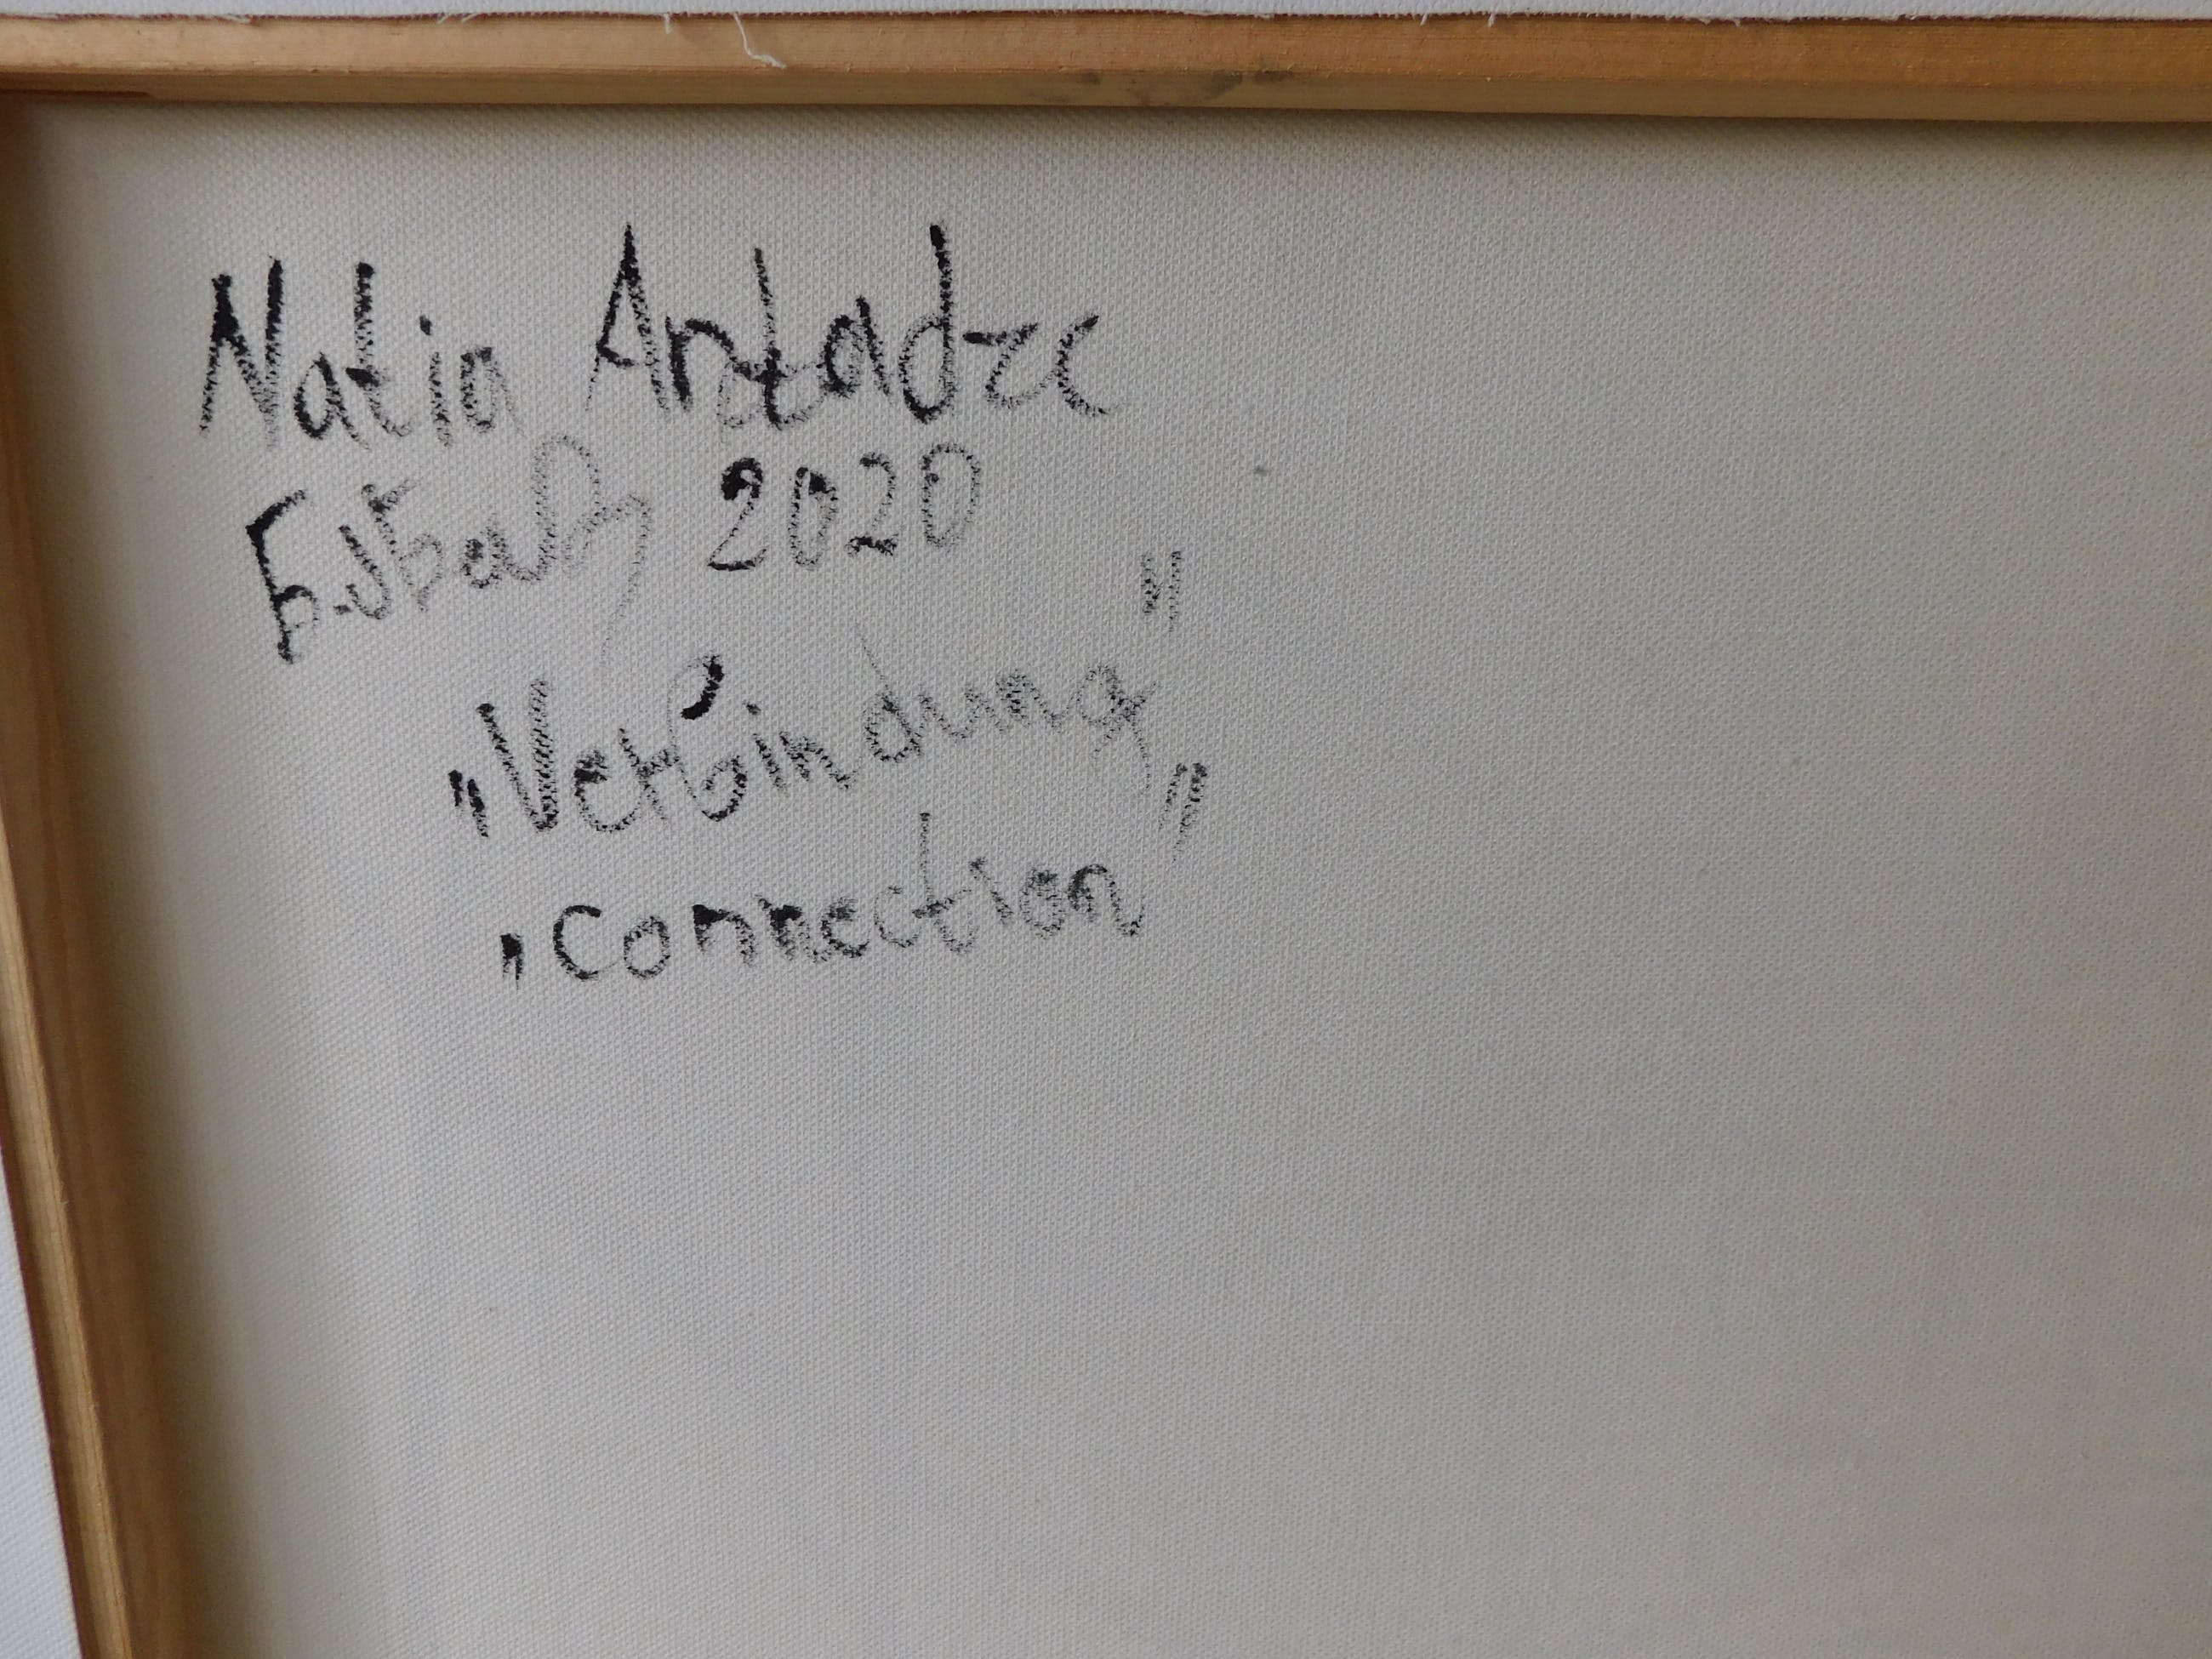 Natia Artadze
2020
„Verbindung"
„connection"